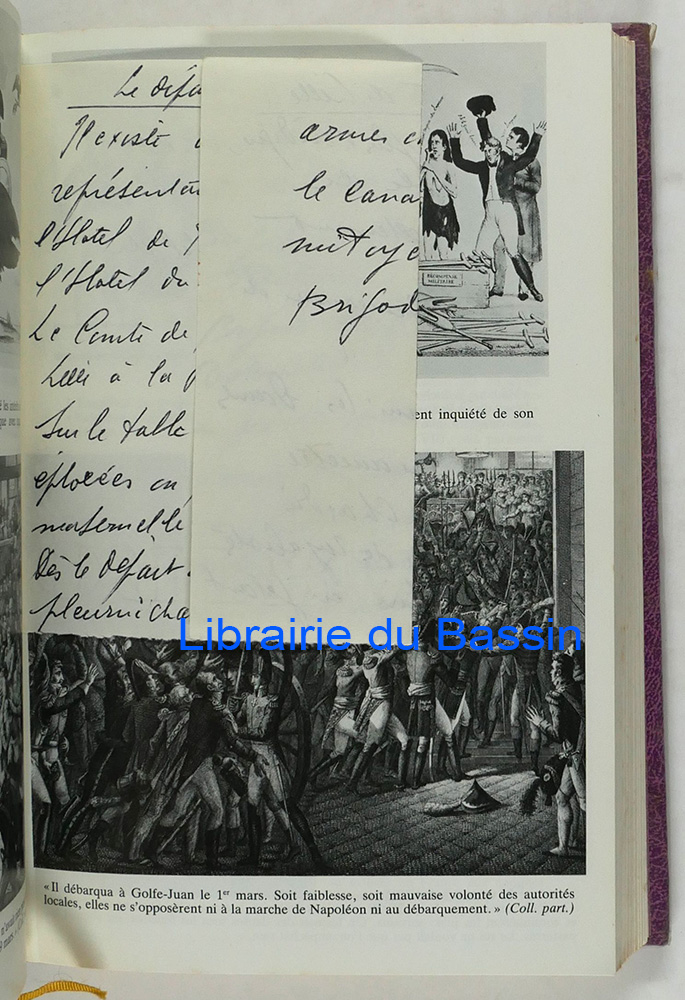 Le dépa
Il existe
représentan
l'Hotel de
l'Hotel du
Le Comte de
à la
Sur le table
éplorées ou
maternelle
Dès le départ
pleurnicha
armes e
le cana
mitoye
Brigode
RÉCOMPENSE
MILITAIRE
ent inquiété de son
Librairie du Bassin
« Il débarqua à Golfe-Juan le 1er mars. Soit faiblesse, soit mauvaise volonté des autorités
locales, elles ne s'opposèrent ni à la marche de Napoléon ni au débarquement. » (Coll. part.)